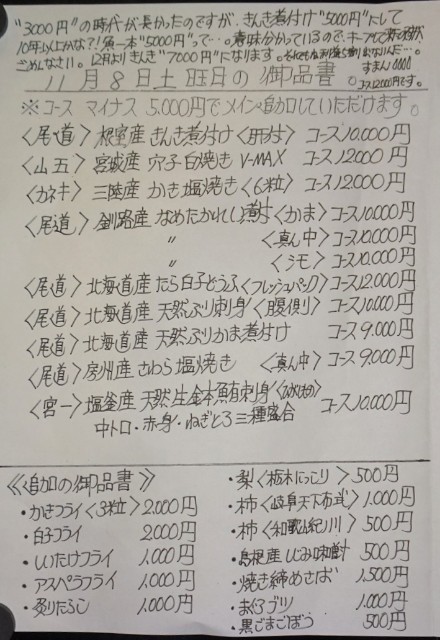 "3000円"の時代が長かったのですが、きんき煮付け"5000円"にして
10年以上かな?!魚一本"5000円"って…意味分かっているので、
ごめんなさい。12月よりきんき"7000円"になります。
すまん
コース12000円です。
11月8日土曜日の御品書
※コース マイナス 5.000円でメイン追加していただけます。
〈尾道〉根室産 きんき煮付け〈肝付〉 コース10.000円
〈山五〉宮城産 穴子白焼き V-MAX コース12.000円
〈カネキ〉三陸産 かき塩焼き〈6粒〉 コース12.000円
〈尾道〉釧路産 なめたかれい煮付〈かま〉コース10.000円
〃 〈真ん中〉コース10.000円
〃 〈シモ〉コース10.000円
〈尾道〉北海道産 たら白子とうふ〈フレッシュパック〉コース12.000円
〈尾道〉北海道産 天然ぶり刺身〈腹側〉コース10.000円
〈尾道〉北海道産 天然ぶりかま煮付け コース9.000円
〈尾道〉房州産 さわら塩焼き 〈真ん中〉コース9.000円
〈宮一〉塩釜産 天然生本鮪刺身〈ひがしもの〉コース10.000円
中トロ・赤身・ねぎとろ三種盛合
《追加の御品書》
・かきフライ〈3粒〉2.000円
・白子フライ 2.000円
・しいたけフライ 1.000円
・アスパラフライ 1.000円
・炙りたらこ 1.000円
・梨〈栃木にっこり〉500円
・柿〈岐阜天下布武〉1.000円
・柿〈和歌山紀ノ川〉500円
・島根産しじみ味噌汁 500円
・焼き締めさば 1.500円
・まぐろブツ 1.000円
・黒ごまごぼう 500円